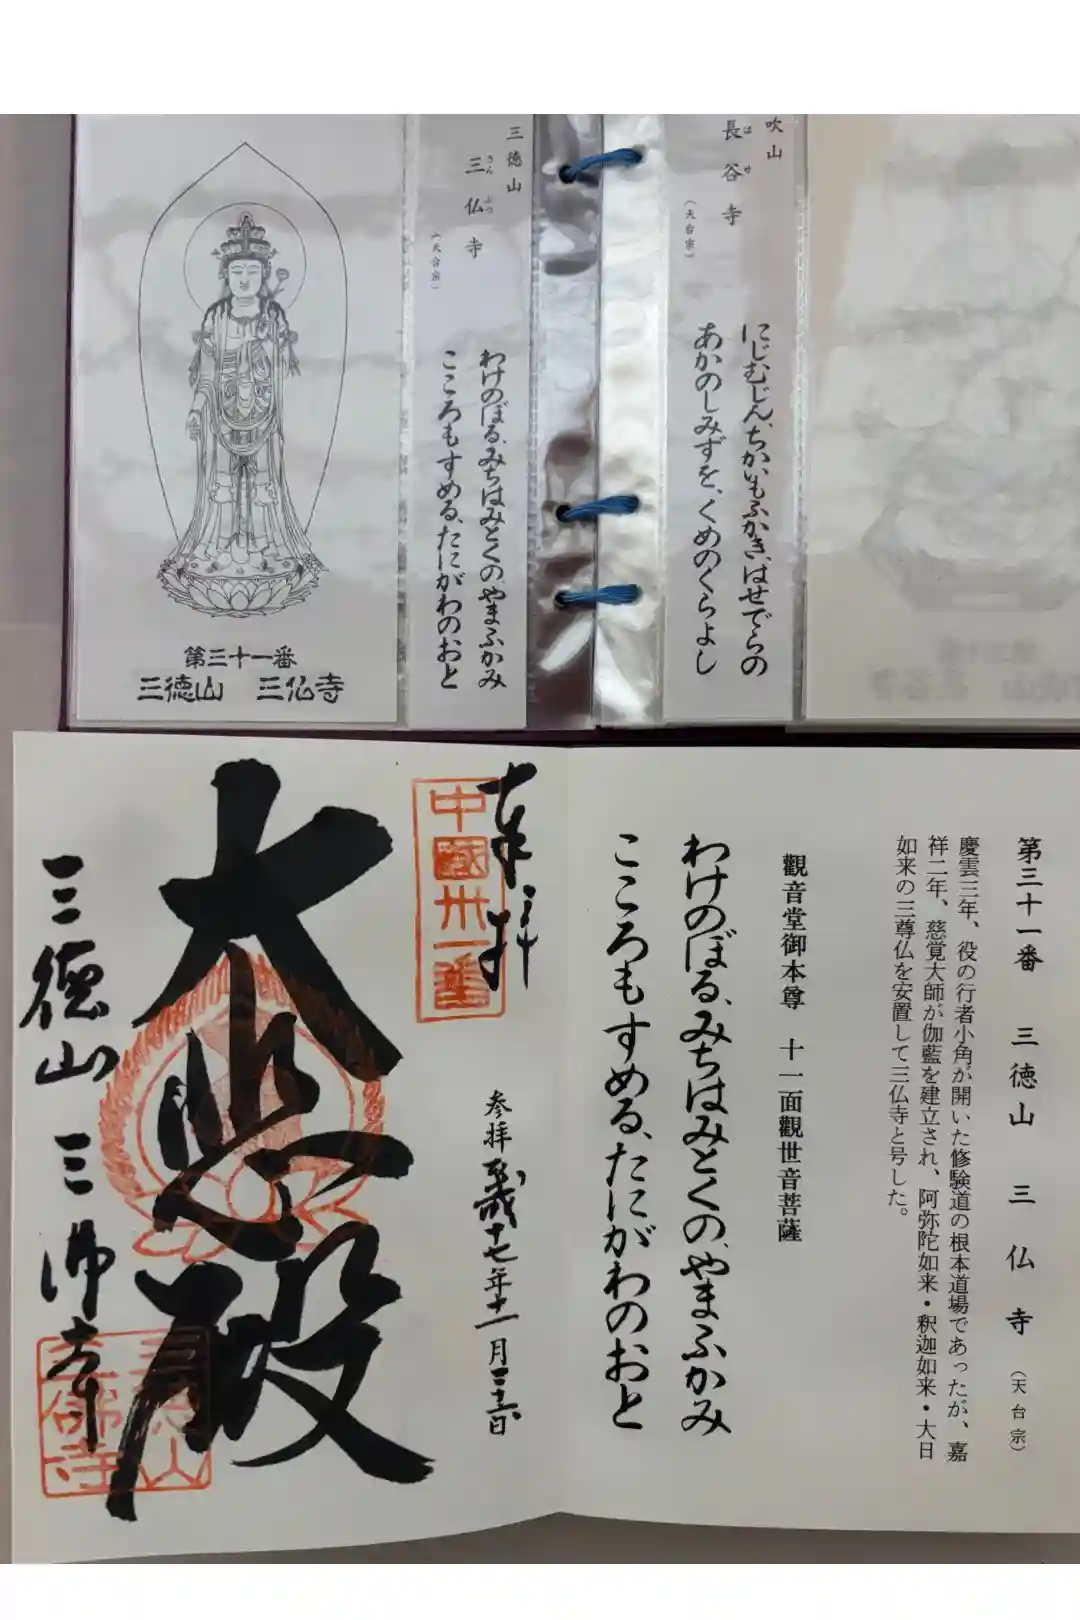 吹山
長谷寺
はせ
(天台宗)
にじむじん、ちかいもふかき、はせでらの
あかのしみずを、くめのくらよし
三徳山
三仏寺
さんぶつ
(天台宗)
わけのぼる、みちはみとくの、やまふかみ
こころもすめる、たにがわのおと
第三十一番
三徳山 三仏寺
第三十一番 三徳山 三仏寺 (天台宗)
慶雲三年、役の行者小角が開いた修験道の根本道場であったが、嘉
祥二年、慈覚大師が伽藍を建立され、阿弥陀如来・釈迦如来・大日
如来の三尊仏を安置して三仏寺と号した。
觀音堂御本尊 十一面觀世音菩薩
わけのぼる、みちはみとくの、やまふかみ
こころもすめる、たにがわのおと
奉拝
中國卅一番
参拝 十七年十一月
日
大悲殿
三徳山三佛寺
三徳山
三佛寺